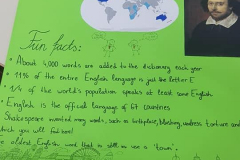 Fun facts:
• About 4,000 words are added to the dictionary each year
• 11% of the entire English language is just the letter E
• 1/4 of the world's population speaks at least some English
• English is the official language of 67 countries
Shakespeare invented many words, such as birthplace, blushing, undress, torture and
which you will find now!
oldest English word that is still in use is "town".